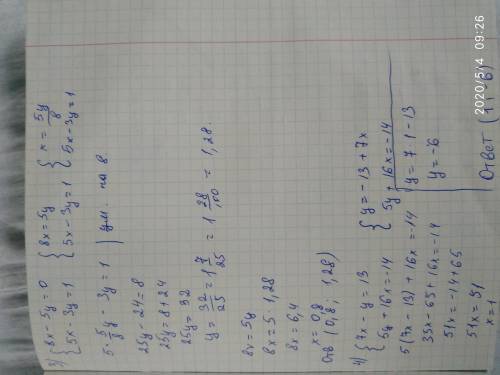 3) { 8x - 5y = 0 { 8x = 5y { x = 5y/8
{ 5x - 3y = 1 { 5x - 3y = 1 { 5x - 3y = 1
5 · 5/8 y - 3y = 1 | ум. на 8
25y - 24 = 8
25y = 8 + 24
25y = 32
y = 32/25 = 1 7/25 = 1 28/100 = 1,28.
8x = 5y
8x = 5 · 1,28
8x = 6,4
x = 0,8
Отв (0,8; 1,28)
4) { 7x - y = 13 { y = -13 + 7x
{ 5y + 16x = -14 { 5y + 16x = -14
5(7x - 13) + 16x = -14
35x - 65 + 16x = -14
51x = -14 + 65
51x = 51
x = 1
y = 7 · 1 - 13
y = -6
Ответ (1; -6)
2020/5/4 09:26